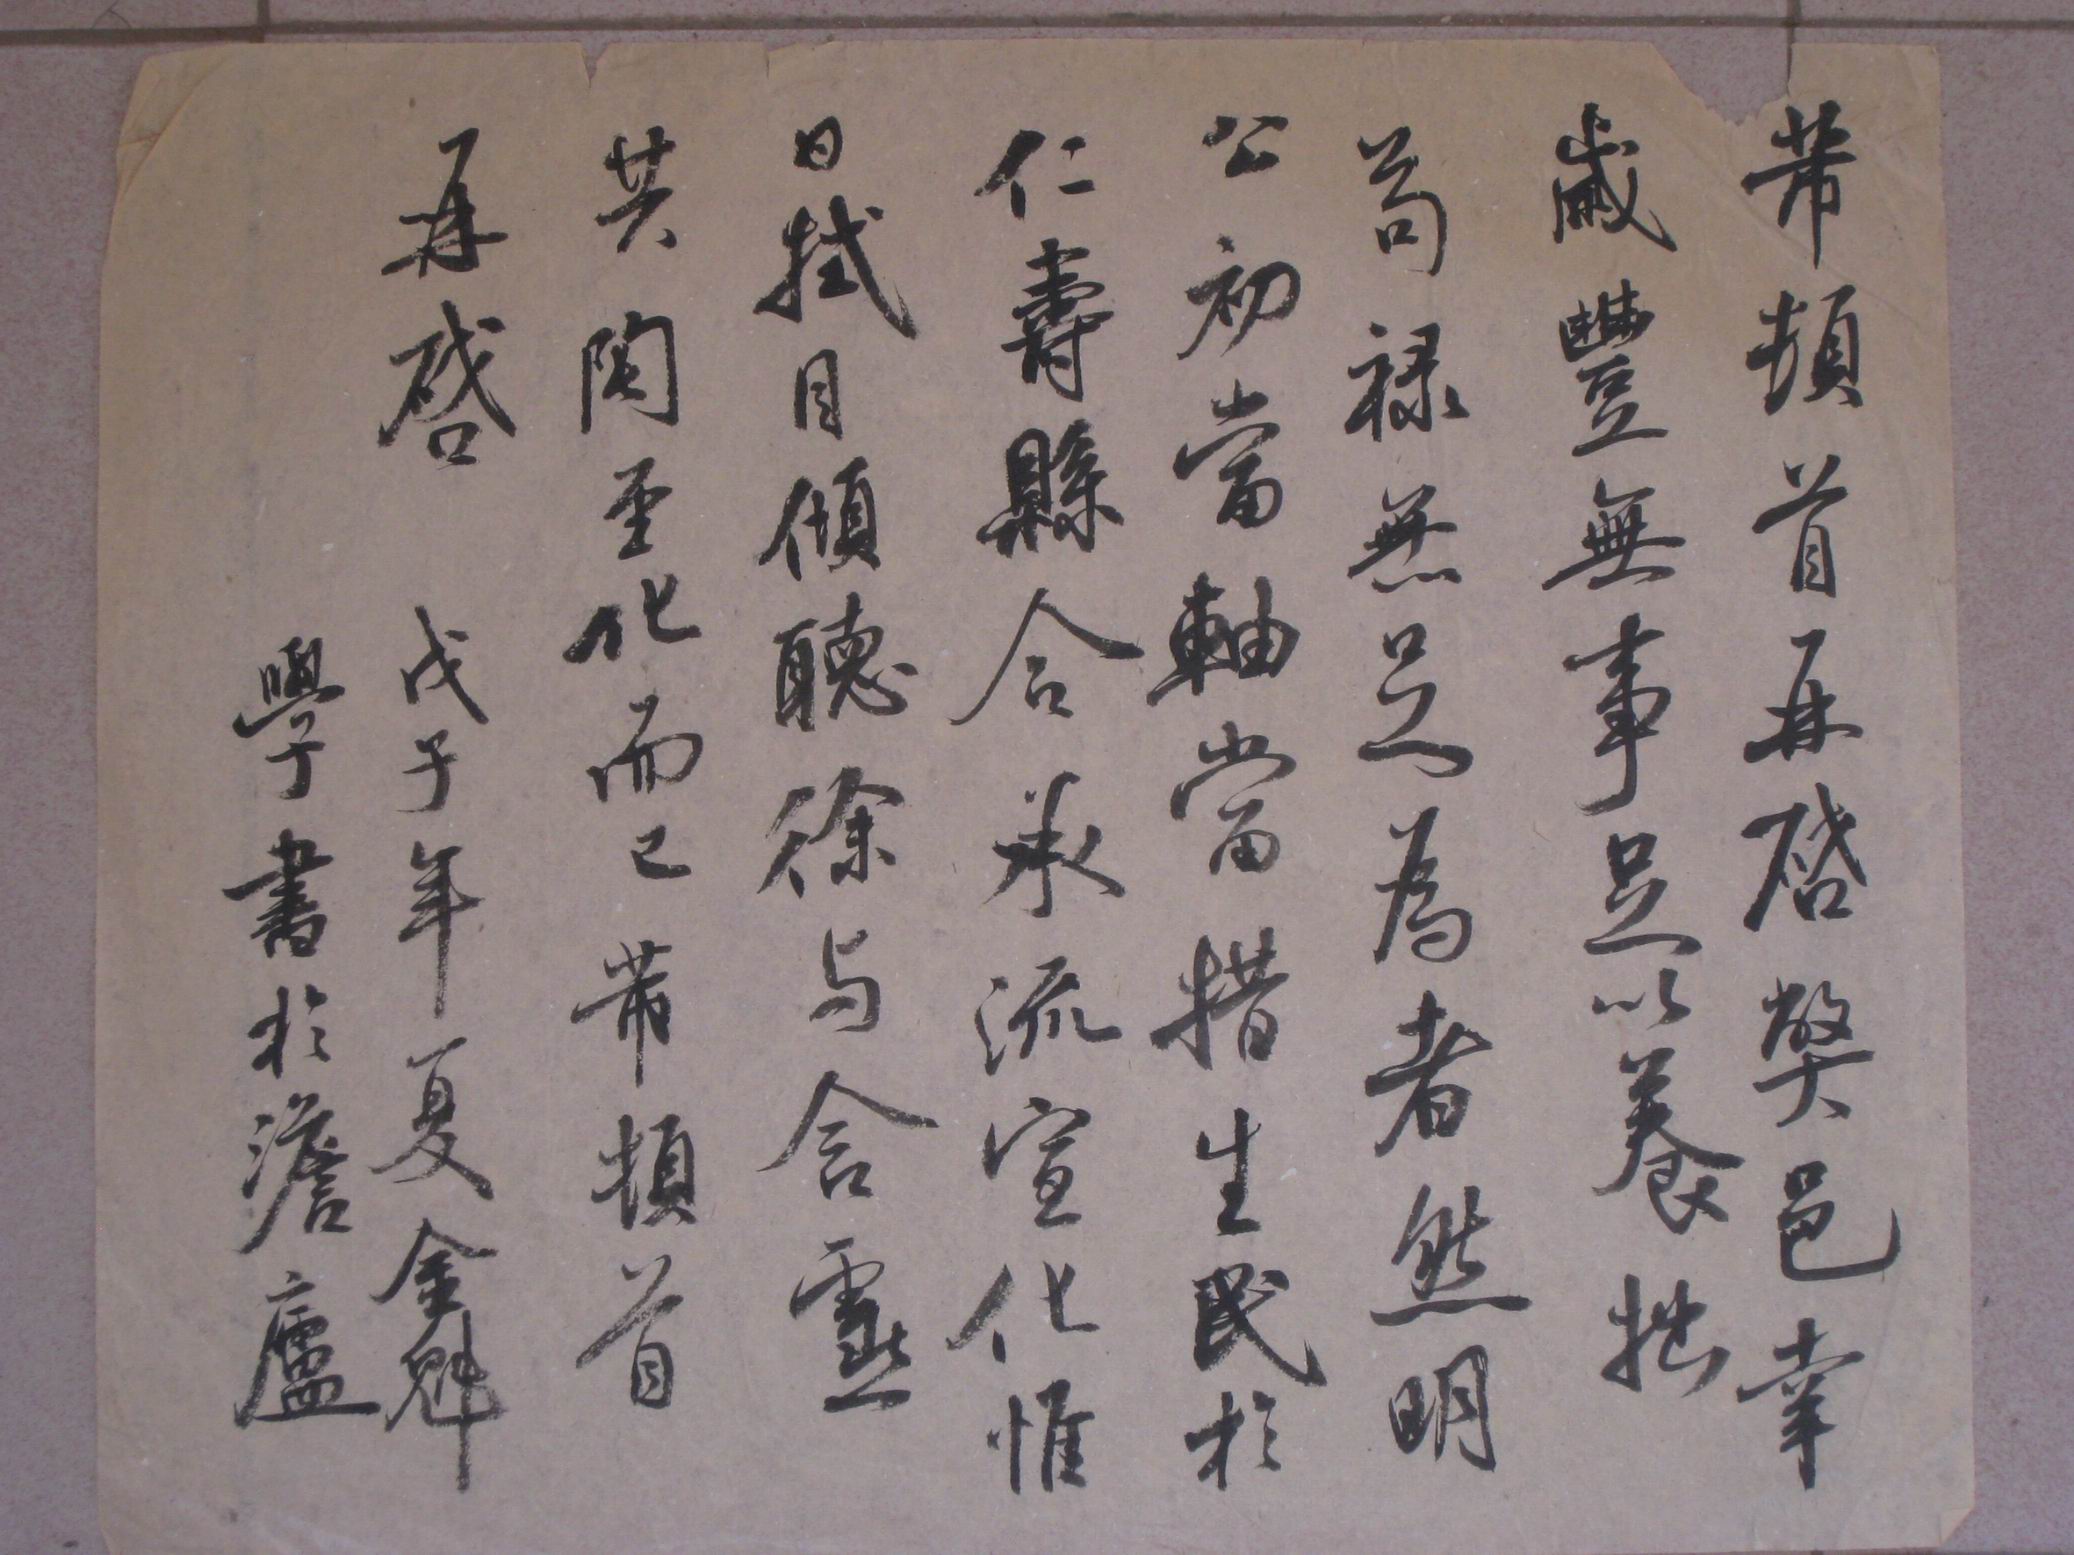 芾頓首再啓弊邑幸
歲豐無事足以養拙
苟祿無足為者然明
公初當軸當措生民於
仁壽縣令承流宣化惟
日拭目傾聽徐与含靈
共陶至化而已芾頓首
再啓 戊子年夏金魁
學書於澹廬